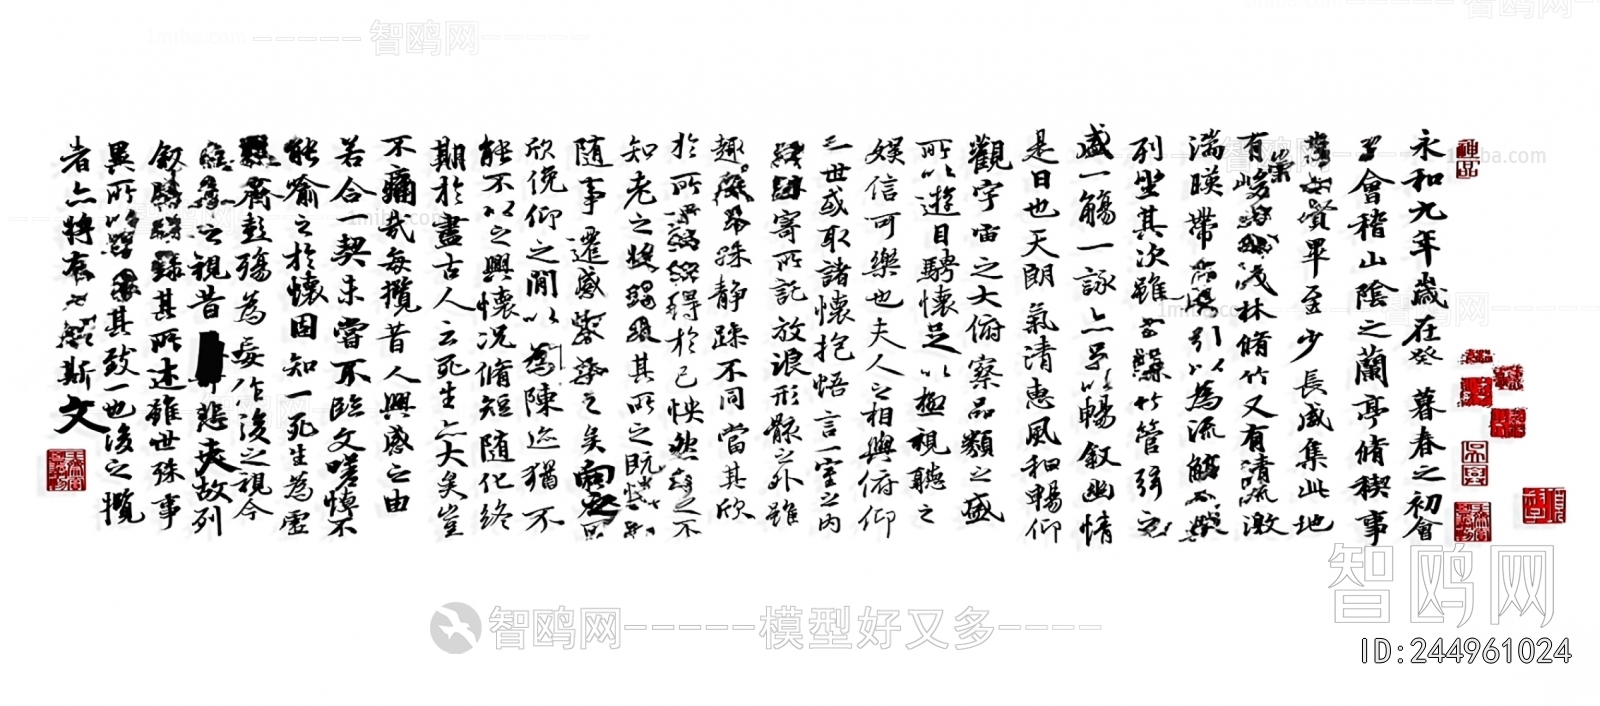 永和九年歲在癸 暮春之初會
會稽山陰之蘭亭脩稧事
賢畢至少長咸集此地
有崇峻 林脩竹又有清流激
湍暎帶 引以為流觴
列坐其次雖 管弦之
盛一觴一詠亦足以暢叙幽情
是日也天朗氣清惠風和暢仰
觀宇宙之大俯察品類之盛
所以遊目騁懷足以極視聽之
娛信可樂也夫人之相與俯仰
一世或取諸懷抱悟言一室之內
寄所託放浪形骸之外雖
趣 殊靜躁不同當其欣
於所 得於己怏然 之不
知老之將 其所之既
隨事遷感 之矣向之
欣俛仰之閒以 陳迹猶不
能不以之興懷況脩短隨化終
期於盡古人云死生亦大矣豈
不痛哉每攬昔人興感之由
若合 契未嘗不臨文嗟悼不
能喻之於懷固知一死生為虛
齊彭殤為妄作後之視今
之視昔 悲夫故列
敘 錄其所述雖世殊事
異所以 其致一也後之攬
者亦將有 斯文
智鸥网-----模型好又多----
智鸥网
ID:244961024